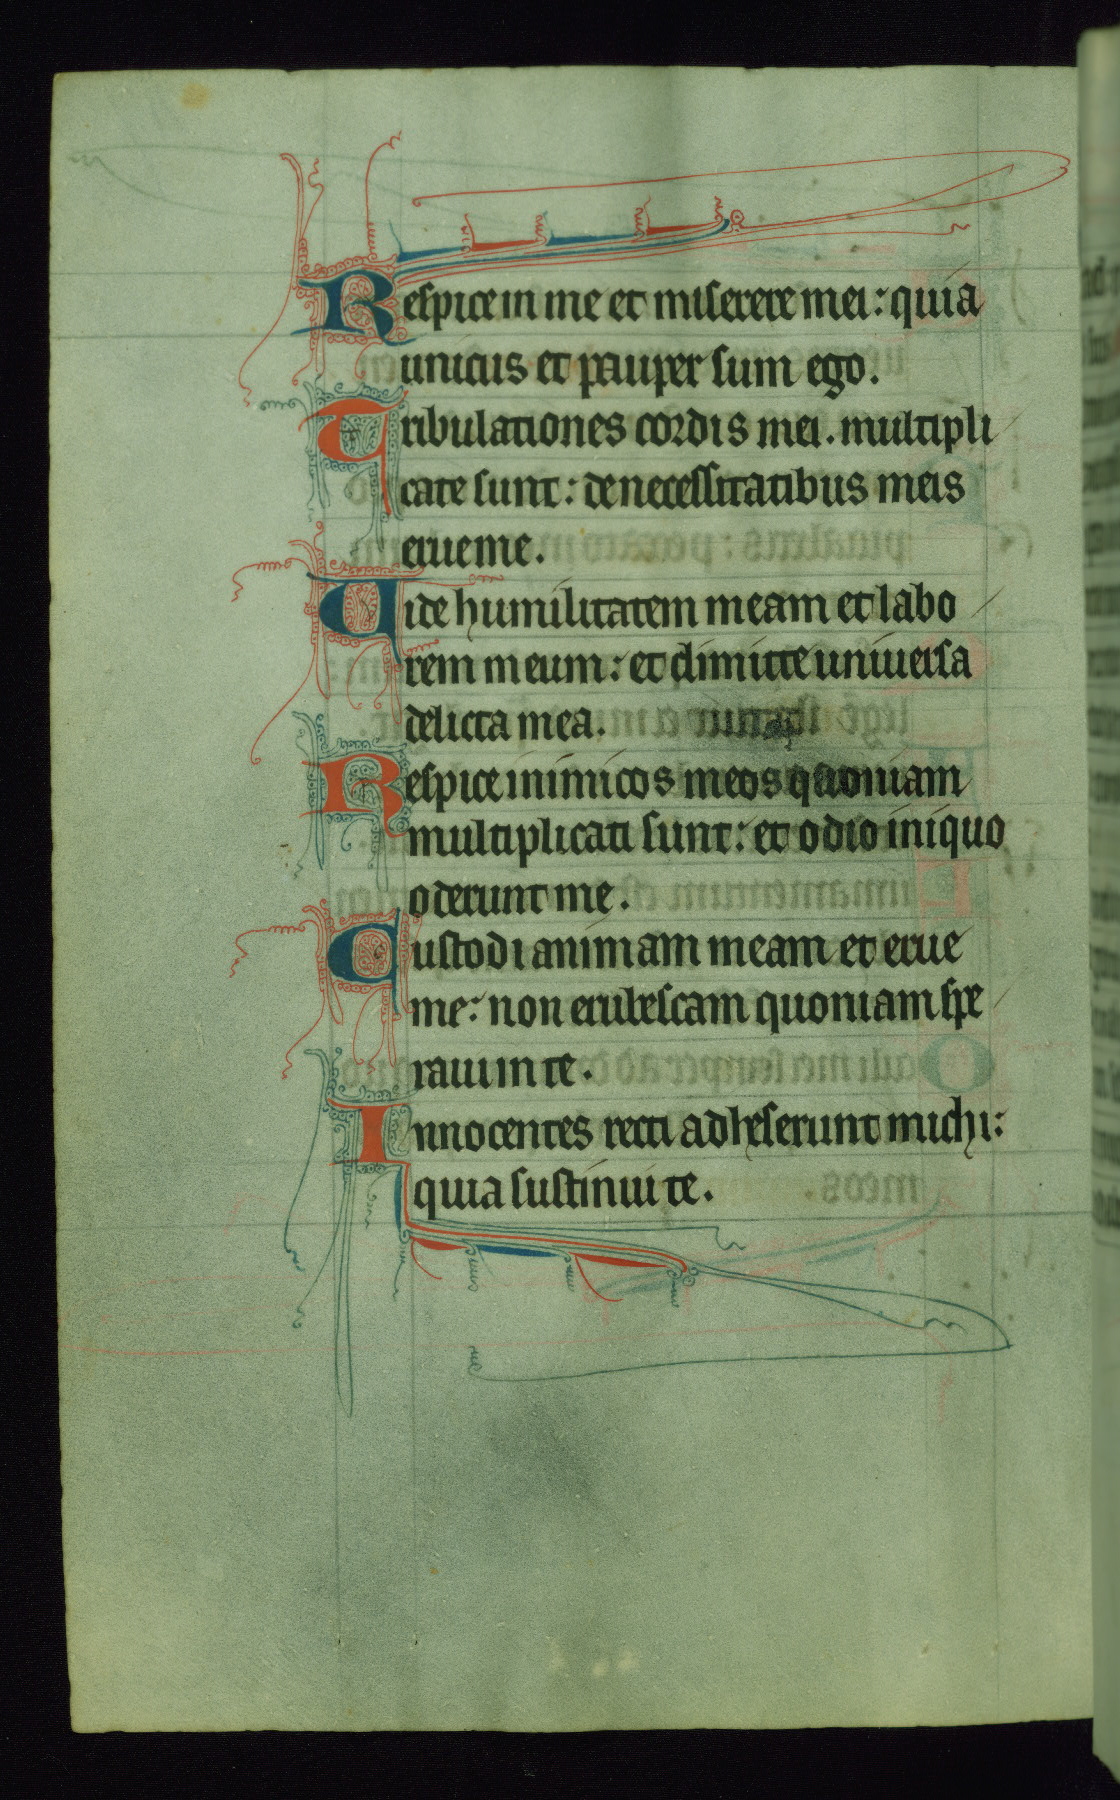 Respice in me et miserere mei: quia
unicus et pauper sum ego.
Tribulationes cordis mei. multipli
cate sunt: de necessitatibus meis
erue me.
Uide humilitatem meam et labo
rem meum: et dimitte uniuersa
delicta mea.
Respice inimicos meos quoniam
multiplicati sunt: et odio iniquo
oderunt me.
Custodi animam meam et erue
me: non erubescam quoniam spe
raui in te.
Innocentes recti adheserunt michi:
quia sustinui te.